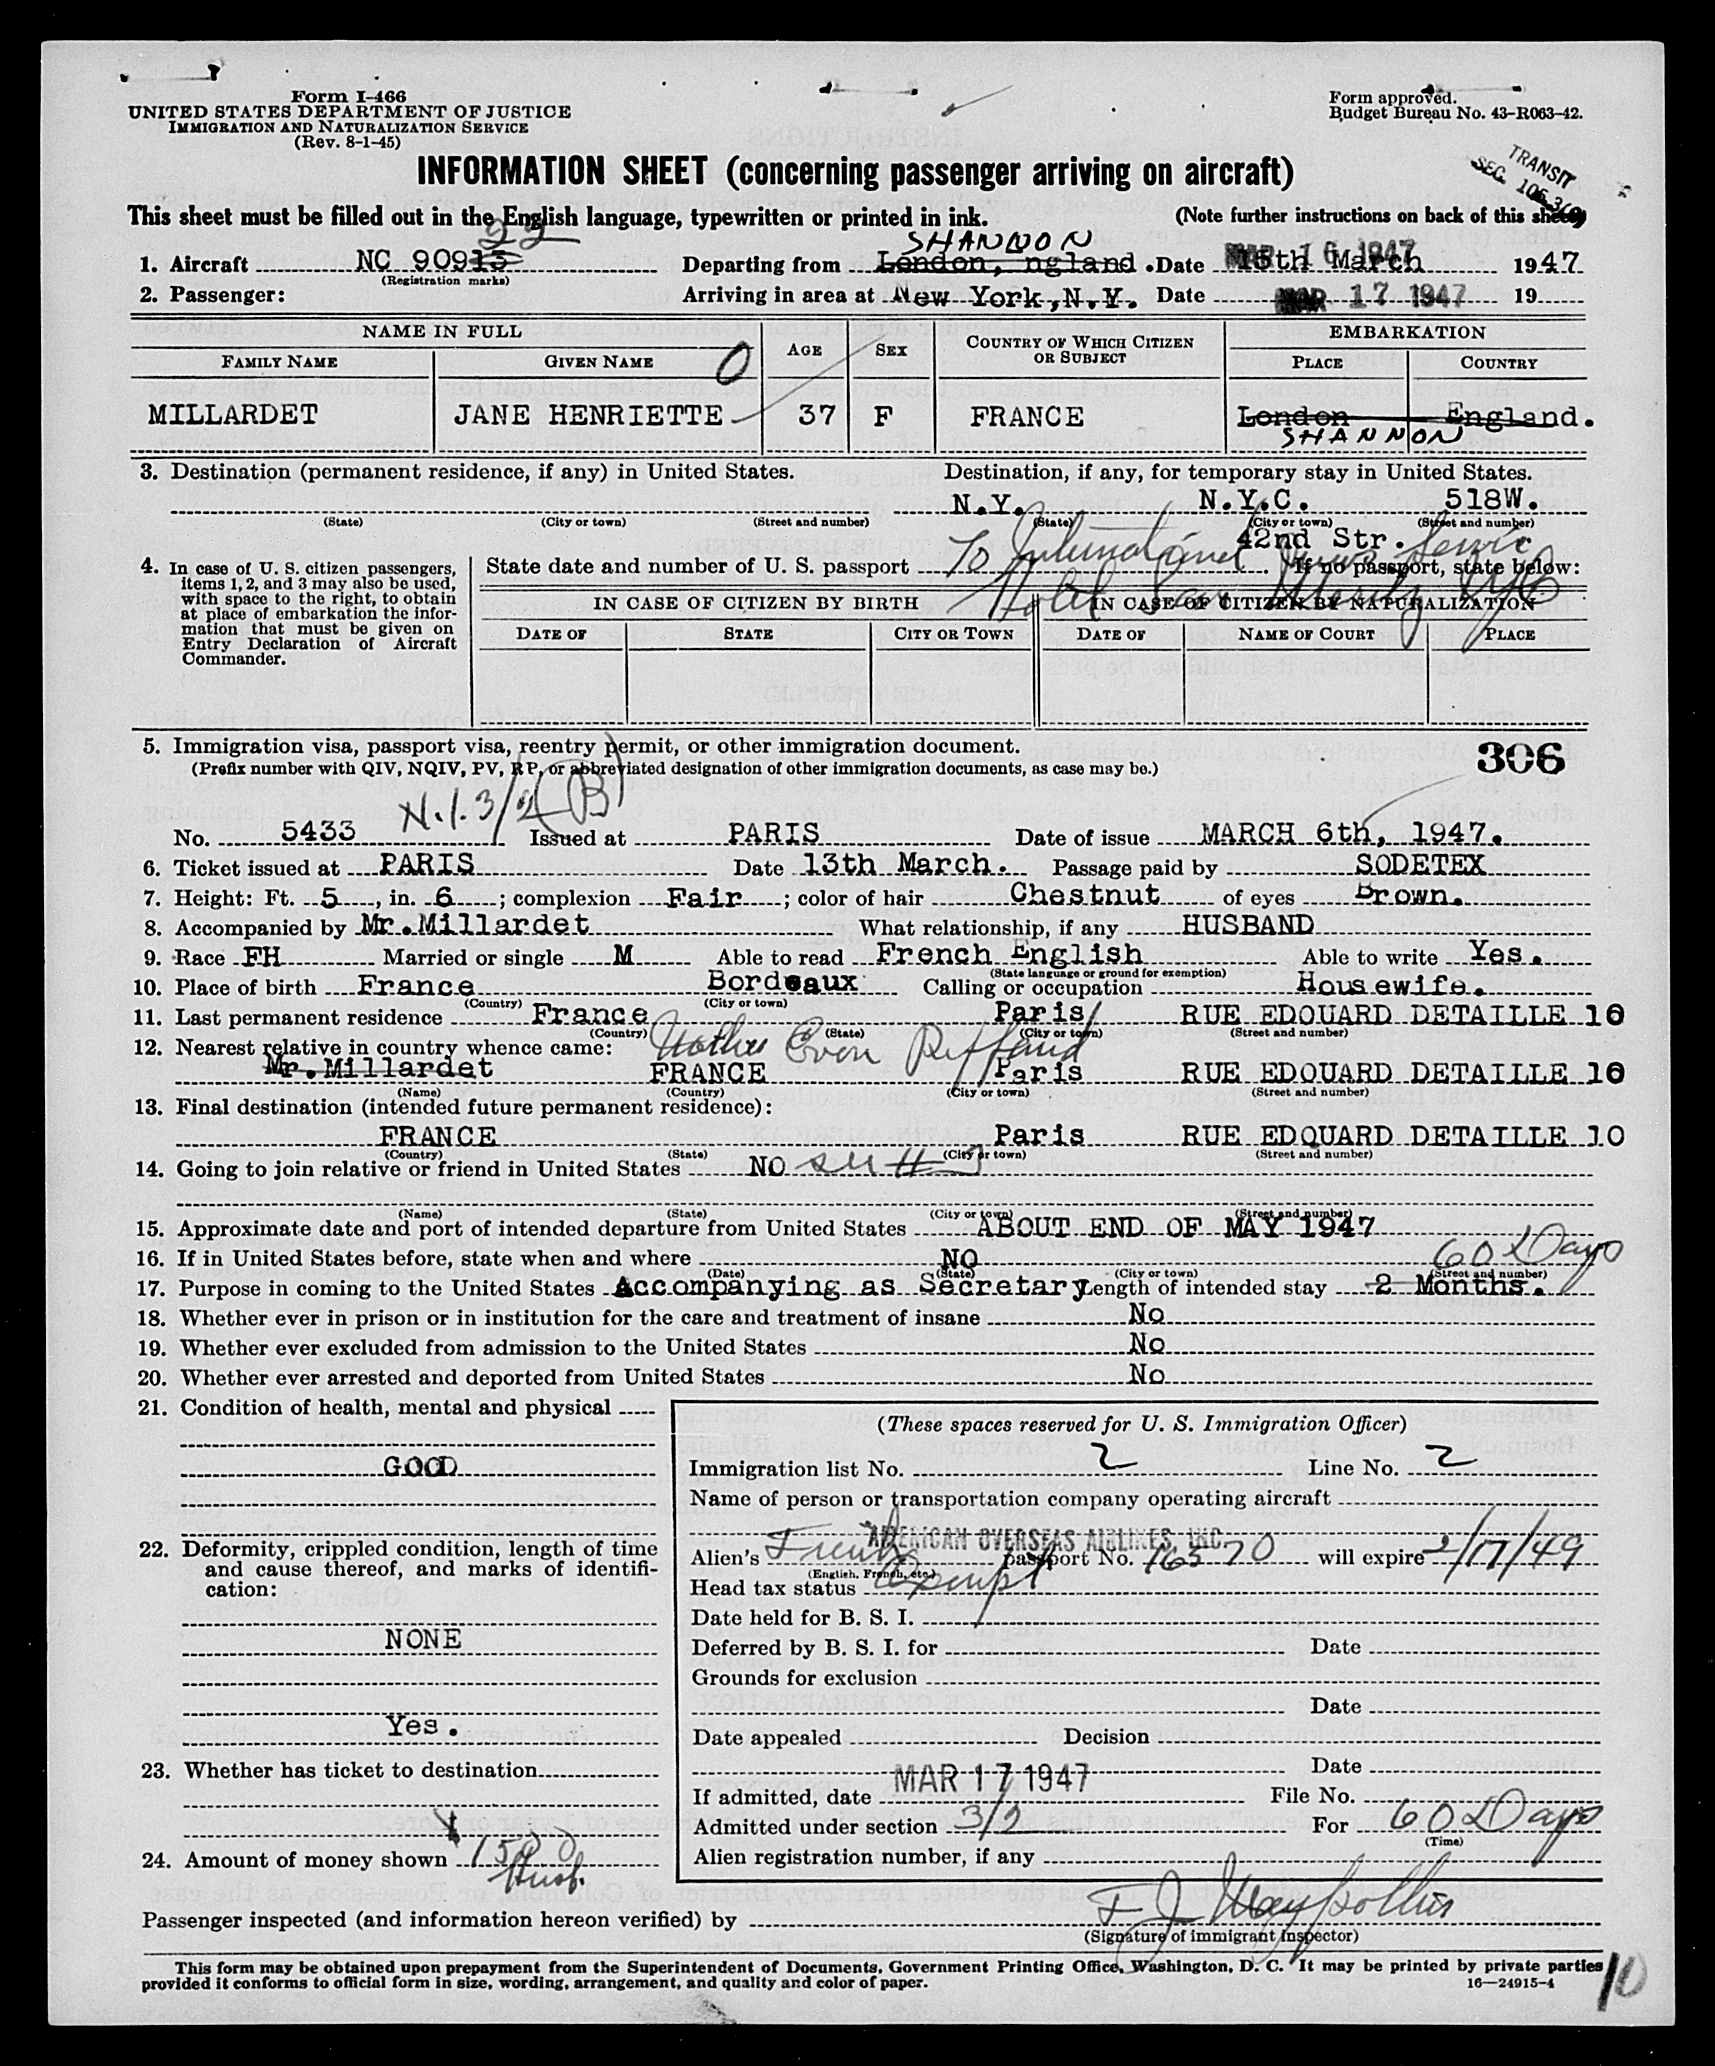 Form I-466
UNITED STATES DEPARTMENT OF JUSTICE
IMMIGRATION AND NATURALIZATION SERVICE
(Rev. 8-1-45)
Form approved.
Budget Bureau No. 43-R063-42.
INFORMATION SHEET (concerning passenger arriving on aircraft)
TRANSIT
SEC. 105.3(
This sheet must be filled out in the English language, typewritten or printed in ink. (Note further instructions on back of this sheet)
22 SHANNON
1. Aircraft NC 90913 Departing from London, ngland. Date MAR 16 1947 15th March 1947
(Registration marks)
2. Passenger: Arriving in area at New York, N.Y. Date MAR 17 1947 19
NAME IN FULL AGE SEX COUNTRY OF WHICH CITIZEN OR SUBJECT EMBARKATION
FAMILY NAME GIVEN NAME O PLACE COUNTRY
MILLARDET JANE HENRIETTE 37 F FRANCE London England.
SHANNON
3. Destination (permanent residence, if any) in United States. Destination, if any, for temporary stay in United States.
N.Y. N.Y.C. 518W.
(State) (City or town) (Street and number) (State) (City or town) (Street and number)
42nd Str.
To International
Hotel
4. In case of U. S. citizen passengers, items 1, 2, and 3 may also be used, with space to the right, to obtain at place of embarkation the information that must be given on Entry Declaration of Aircraft Commander.
State date and number of U. S. passport If no passport, state below:
IN CASE OF CITIZEN BY BIRTH IN CASE OF CITIZEN BY NATURALIZATION
DATE OF STATE CITY OR TOWN DATE OF NAME OF COURT PLACE
5. Immigration visa, passport visa, reentry permit, or other immigration document. 306
(Prefix number with QIV, NQIV, PV, RP, or abbreviated designation of other immigration documents, as case may be.)
N.I. 3/2 (B)
No. 5433 Issued at PARIS Date of issue MARCH 6th, 1947.
6. Ticket issued at PARIS Date 13th March. Passage paid by SODETEX
7. Height: Ft. 5, in. 6; complexion Fair; color of hair Chestnut of eyes Brown.
8. Accompanied by Mr. Millardet What relationship, if any HUSBAND
9. Race FH Married or single M Able to read French English Able to write Yes.
(State language or ground for exemption)
10. Place of birth France Bordeaux Calling or occupation Housewife.
(Country) (City or town)
11. Last permanent residence France Paris RUE EDOUARD DETAILLE 10
(Country) (State) (City or town) (Street and number)
12. Nearest relative in country whence came: Mother
Mr. Millardet FRANCE Paris RUE EDOUARD DETAILLE 10
(Name) (Country) (City or town) (Street and number)
13. Final destination (intended future permanent residence):
FRANCE Paris RUE EDOUARD DETAILLE 10
(Country) (State) (City or town) (Street and number)
14. Going to join relative or friend in United States NO see #3
(Name) (State) (City or town) (Street and number)
15. Approximate date and port of intended departure from United States ABOUT END OF MAY 1947
16. If in United States before, state when and where NO 60 Days
(Date) (State) (City or town) (Street and number)
17. Purpose in coming to the United States Accompanying as Secretary Length of intended stay 2 Months.
18. Whether ever in prison or in institution for the care and treatment of insane No
19. Whether ever excluded from admission to the United States No
20. Whether ever arrested and deported from United States No
21. Condition of health, mental and physical
GOOD
22. Deformity, crippled condition, length of time and cause thereof, and marks of identification:
NONE
Yes.
23. Whether has ticket to destination
24. Amount of money shown 1500
Husb.
(These spaces reserved for U. S. Immigration Officer)
Immigration list No. 2 Line No. 2
Name of person or transportation company operating aircraft
AMERICAN OVERSEAS AIRLINES, INC.
Alien's French passport No. 16570 will expire 2/17/49
(English, French, etc.)
Head tax status Exempt
Date held for B. S. I.
Deferred by B. S. I. for Date
Grounds for exclusion
Date
Date appealed Decision
Date
If admitted, date MAR 17 1947 File No.
Admitted under section 3/2 For 60 Days
(Time)
Alien registration number, if any
Passenger inspected (and information hereon verified) by
(Signature of immigrant inspector)
This form may be obtained upon prepayment from the Superintendent of Documents, Government Printing Office, Washington, D. C. It may be printed by private parties
provided it conforms to official form in size, wording, arrangement, and quality and color of paper. 16—24915-4
10